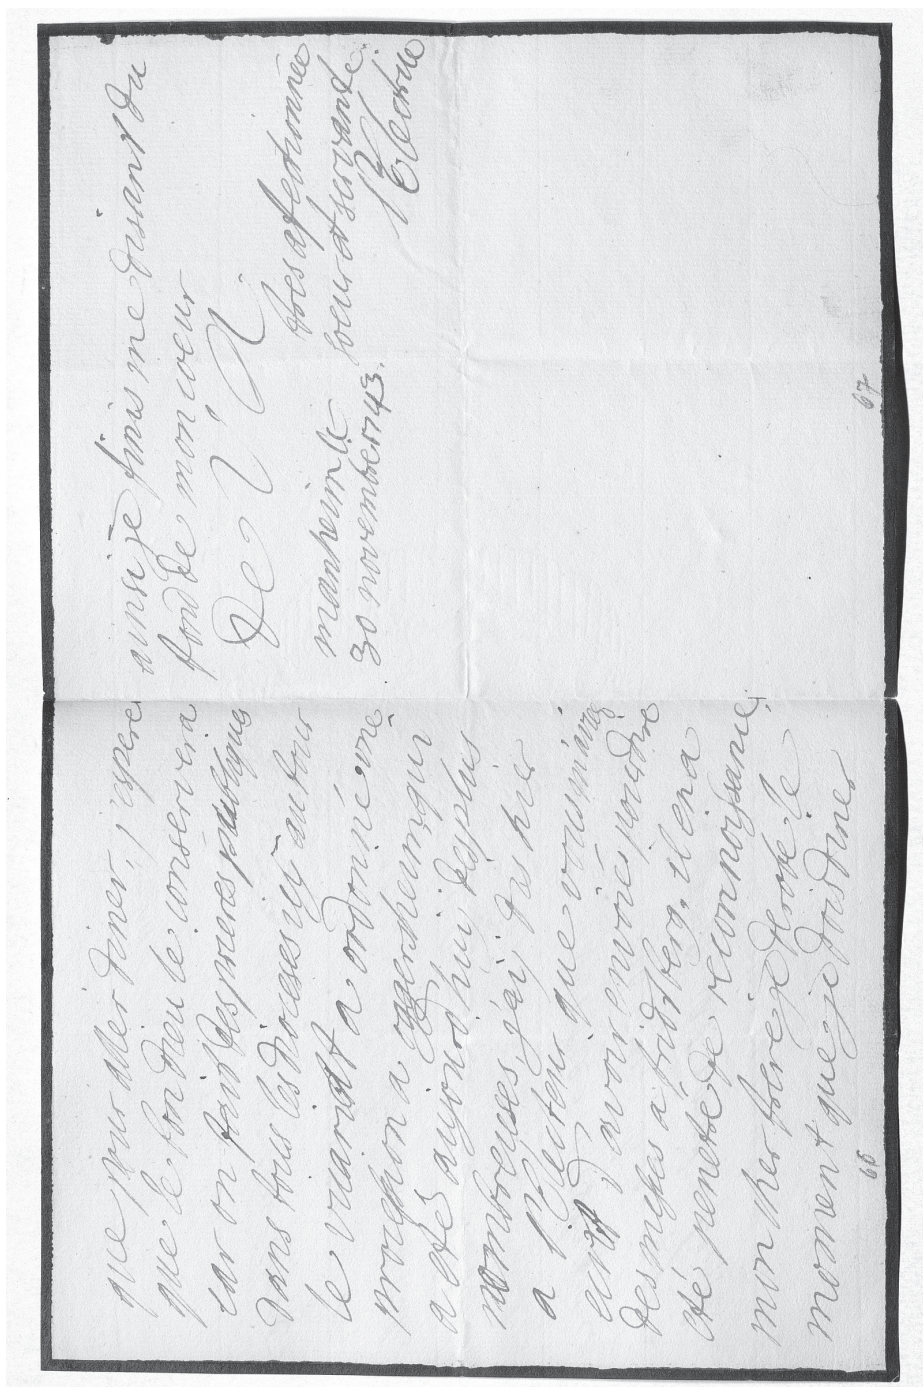 que pour aller diner, j'espere
que le bon dieu le conservera
car on fait des prieres publiques
dans tous les dioceses icy autour
le vicariat a ordonné une
procession a oggersheim qui
a eté aujourd'huy des plus
nombreuses, j'ay dit hier
a l'Electeur que vous m'avez
ecrit d'avoir envoié poudre
des miches a fridsberg, il en a
eté penetré de reconnoissance,
mon cher frere je derobe le
moment que je dois diner
68
ainsi je finis me disant du
fond de mon coeur
De V A
tres afectionnée
soeur et servante
l'Electrice
manheim le
30 novembre 1743.
67